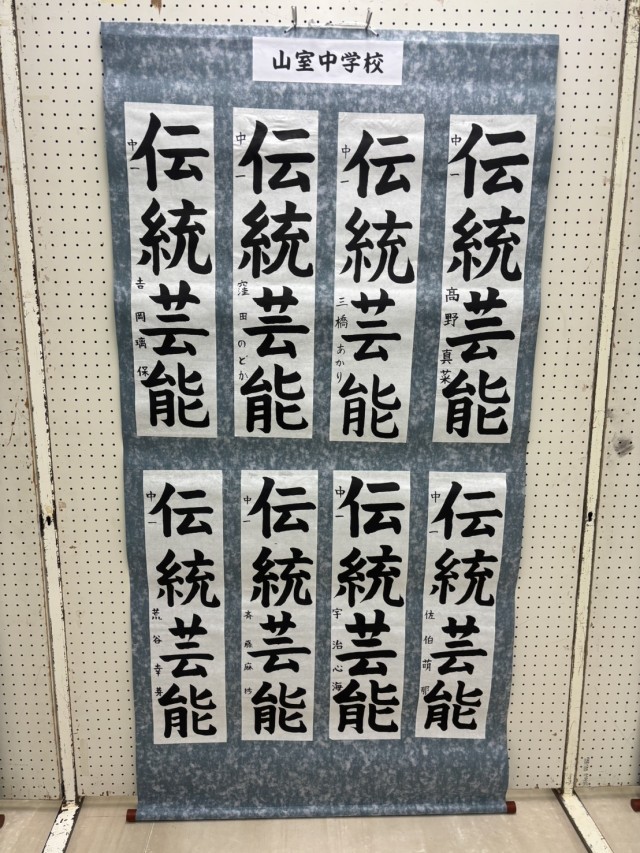 山室中学校
伝統芸能
中一 高野真菜
伝統芸能
中一 三橋あかり
伝統芸能
中一 窪田のどか
伝統芸能
中一 吉岡璃保
伝統芸能
中一 佐伯萌
伝統芸能
中一 宇治心海
伝統芸能
中一 斉藤麻
伝統芸能
中一 荒谷幸